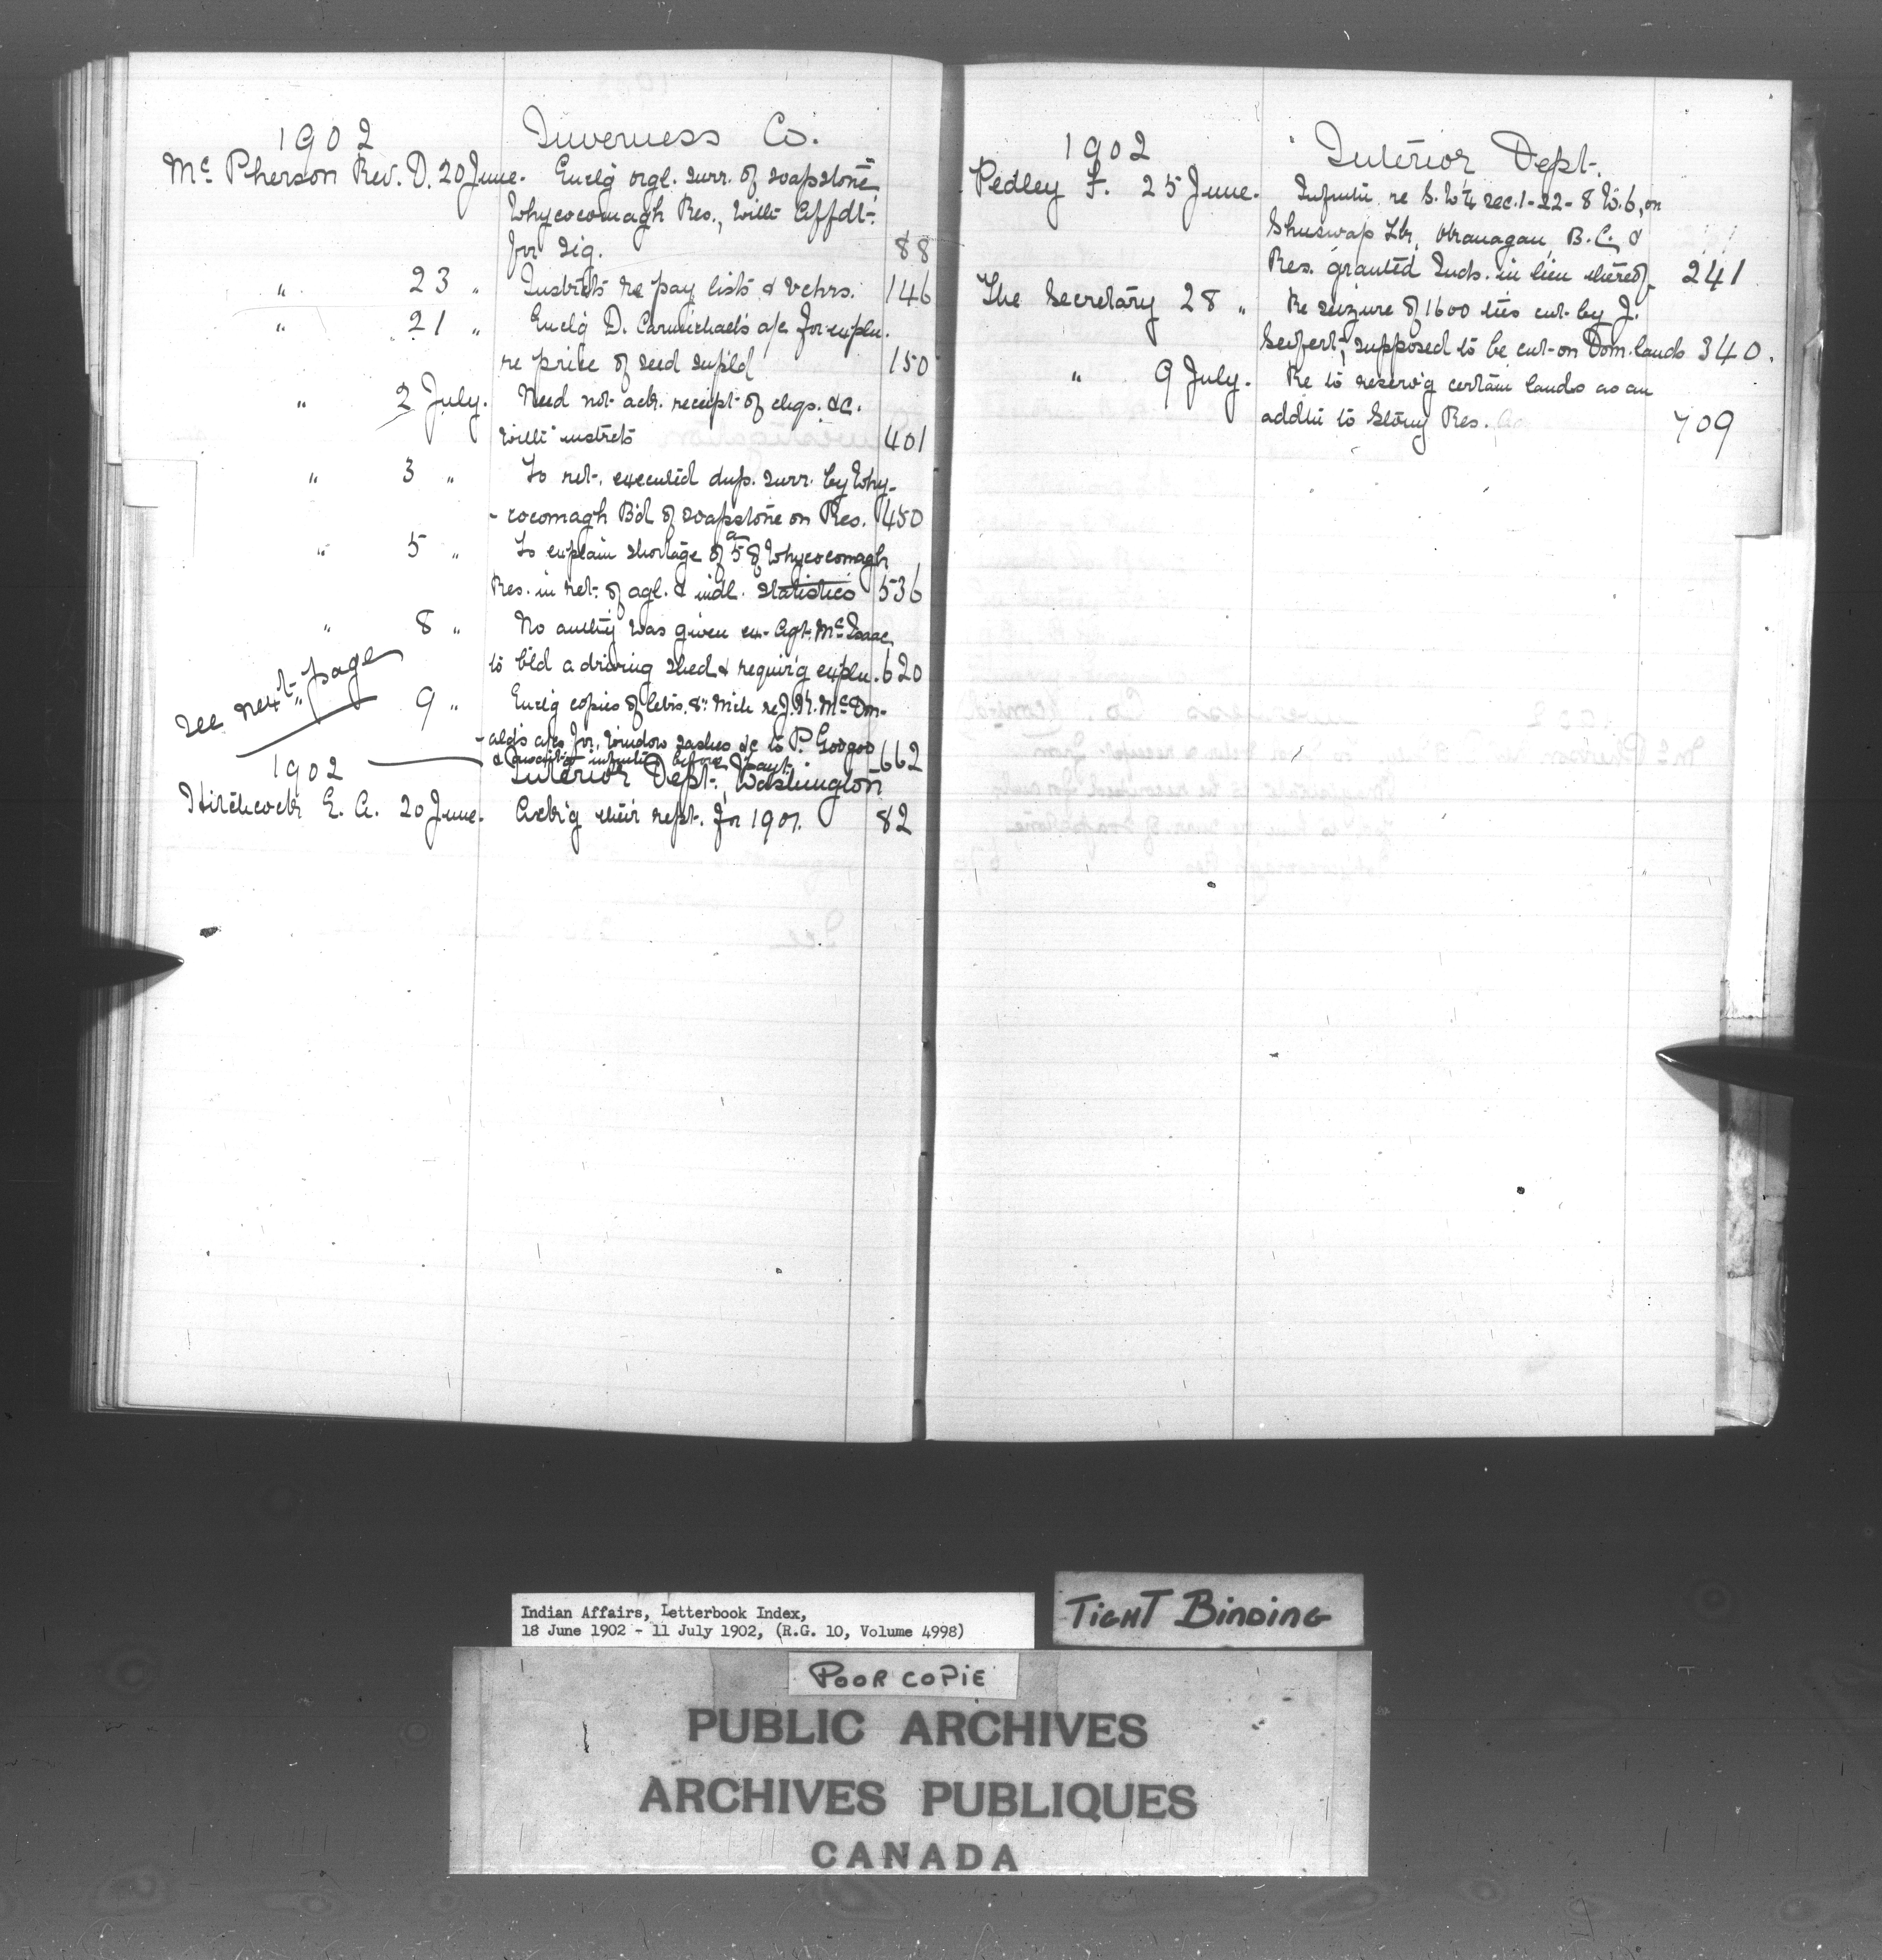 1902 Inverness Co.
Mc Pherson Rev. D. 20 June. Encl'g orgl. surr. of soapstone,
Whycocomagh Res., with Affdt.
for sig. 88
" 23 " Instrcts re pay lists & vchrs. 146
" 21 " Encl'g D. Carmichael's a/c for expln.
re price of seed supld 150
" 2 July. Need not ack. receipt of chqs. &c.
with instrcts 401
" 3 " To ret. executed dup. surr. by Why-
- cocomagh B'd of soapstone on Res. 450
" 5 " To explain shortage of 5 a of Whycocomagh
Res. in ret. of agl. & indl. statistics 536
" 8 " No authy was given ex-Agt. Mc Isaac
to b'ld a driving shed & requir'g expln. 620
See next page
" 9 " Encl'g copies of letrs. 8th Mch re J. H. Mc Don-
- ald's a/cs for window sashes &c to P. Googoo 662
& await'g informtn before paymt.
1902 Interior Dept., Washington
Hitchcock E. A. 20 June. Ack'g their rept. for 1901. 82
1902 Interior Dept.
Pedley F. 25 June. Informtn re S.W¼ sec. 1-22-8 W.6, on
Shuswap Lk, Okanagan, B.C. &
Res. granted Inds. in lieu thereof 241
The Secretary 28 " Re seizure of 1600 ties cut by J.
Seifert, supposed to be cut on Dom. lands 340.
" 9 July. Re to reserv'g certain lands as an
addtn to Stony Res. 709
Indian Affairs, Letterbook Index,
18 June 1902 - 11 July 1902, (R.G. 10, Volume 4998)
TIGHT BINDING
POOR COPIE
PUBLIC ARCHIVES
ARCHIVES PUBLIQUES
CANADA